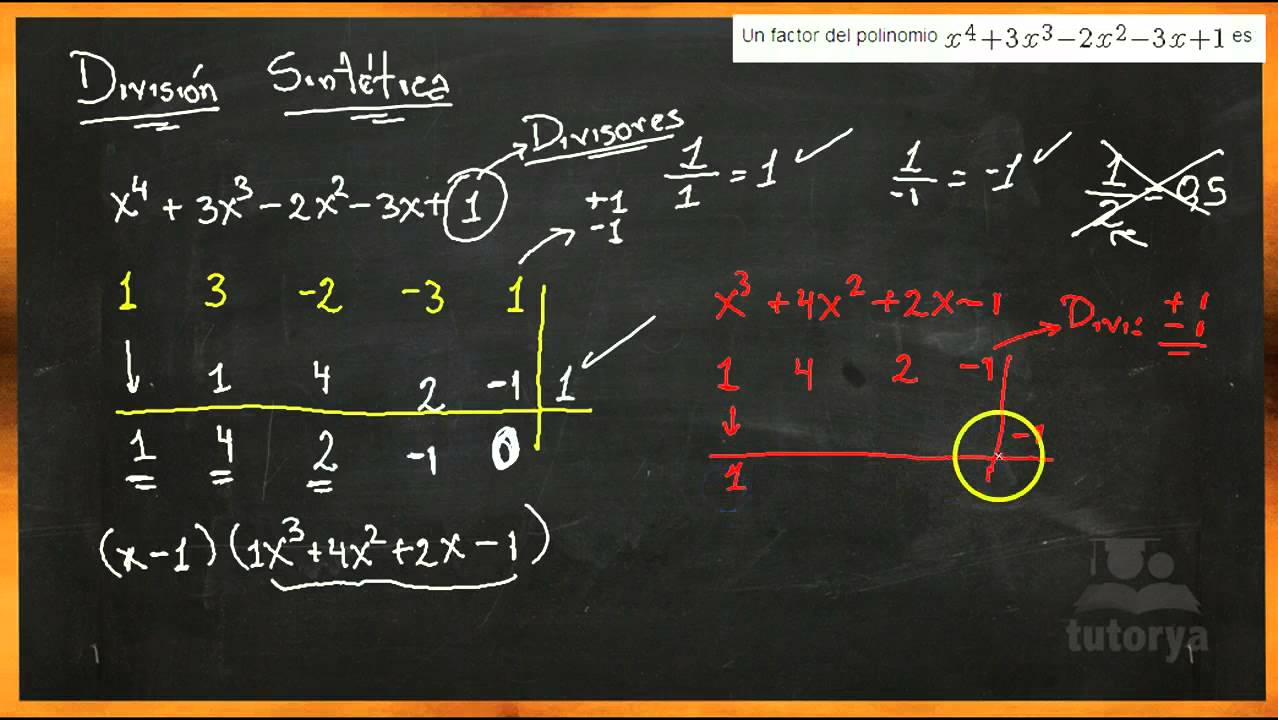 Un factor del polinomio x⁴+3x³−2x²−3x+1 es
División Sintética
Divisores
x⁴ + 3x³ − 2x² − 3x + 1
+1
−1
1/1 = 1 ✓
1/−1 = −1 ✓
1/2 = 0,5
1 3 −2 −3 1
↓ 1 4 2 −1 1 ✓
1 4 2 −1 0
(x−1)(1x³+4x²+2x−1)
x³ + 4x² + 2x − 1
Divi: +1
−1
1 4 2 −1
↓ −1
1
tutorya
1
1